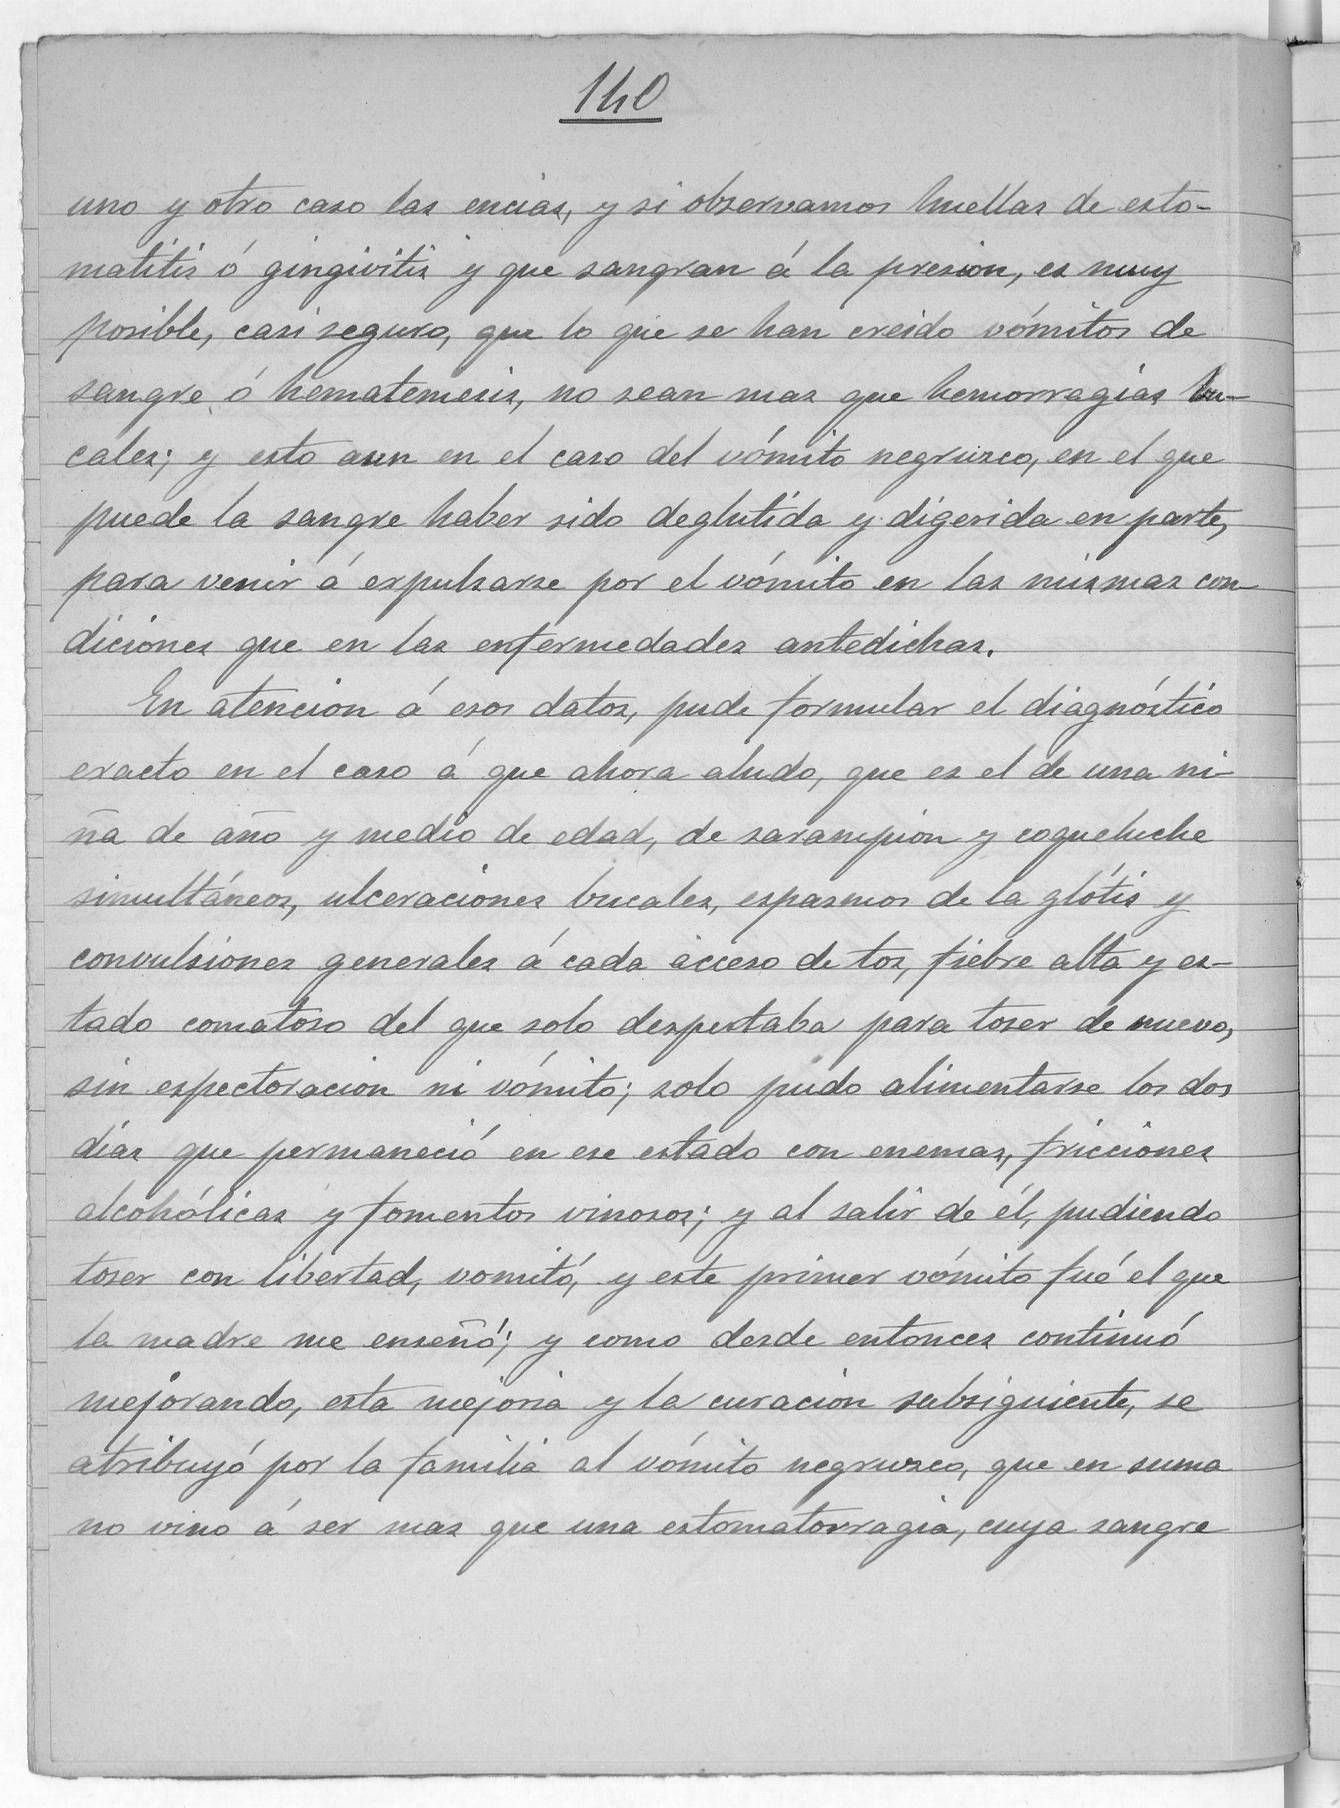 140
uno y otro caso las encias, y si observamos huellas de esto-
matitis ó gingivitis y que sangran á la presion, es muy
posible, casi seguro, que lo que se han creido vómitos de
sangre ó hematemesis, no sean mas que hemorragias bu-
cales; y esto aun en el caso del vómito negruzco, en el que
puede la sangre haber sido deglutida y digerida en parte,
para venir á expulsarse por el vómito en las mismas con
diciones que en las enfermedades antedichas.
En atencion á esos datos, pude formular el diagnóstico
exacto en el caso á que ahora aludo, que es el de una ni-
ña de año y medio de edad, de sarampion y coqueluche
simultáneos, ulceraciones bucales, espasmos de la glótis y
convulsiones generales á cada acceso de tos, fiebre alta y es-
tado comatoso del que solo despertaba para toser de nuevo,
sin espectoracion ni vómito; solo pudo alimentarse los dos
días que permaneció en ese estado con enemas, fricciones
alcohólicas y fomentos vinosos; y al salir de él, pudiendo
toser con libertad, vomitó, y este primer vómito fué el que
la madre me enseñó; y como desde entonces continuó
mejorando, esta mejoria y la curacion subsiguiente, se
atribuyó por la familia al vómito negruzco, que en suma
no vino á ser mas que una estomatorragia, cuya sangre